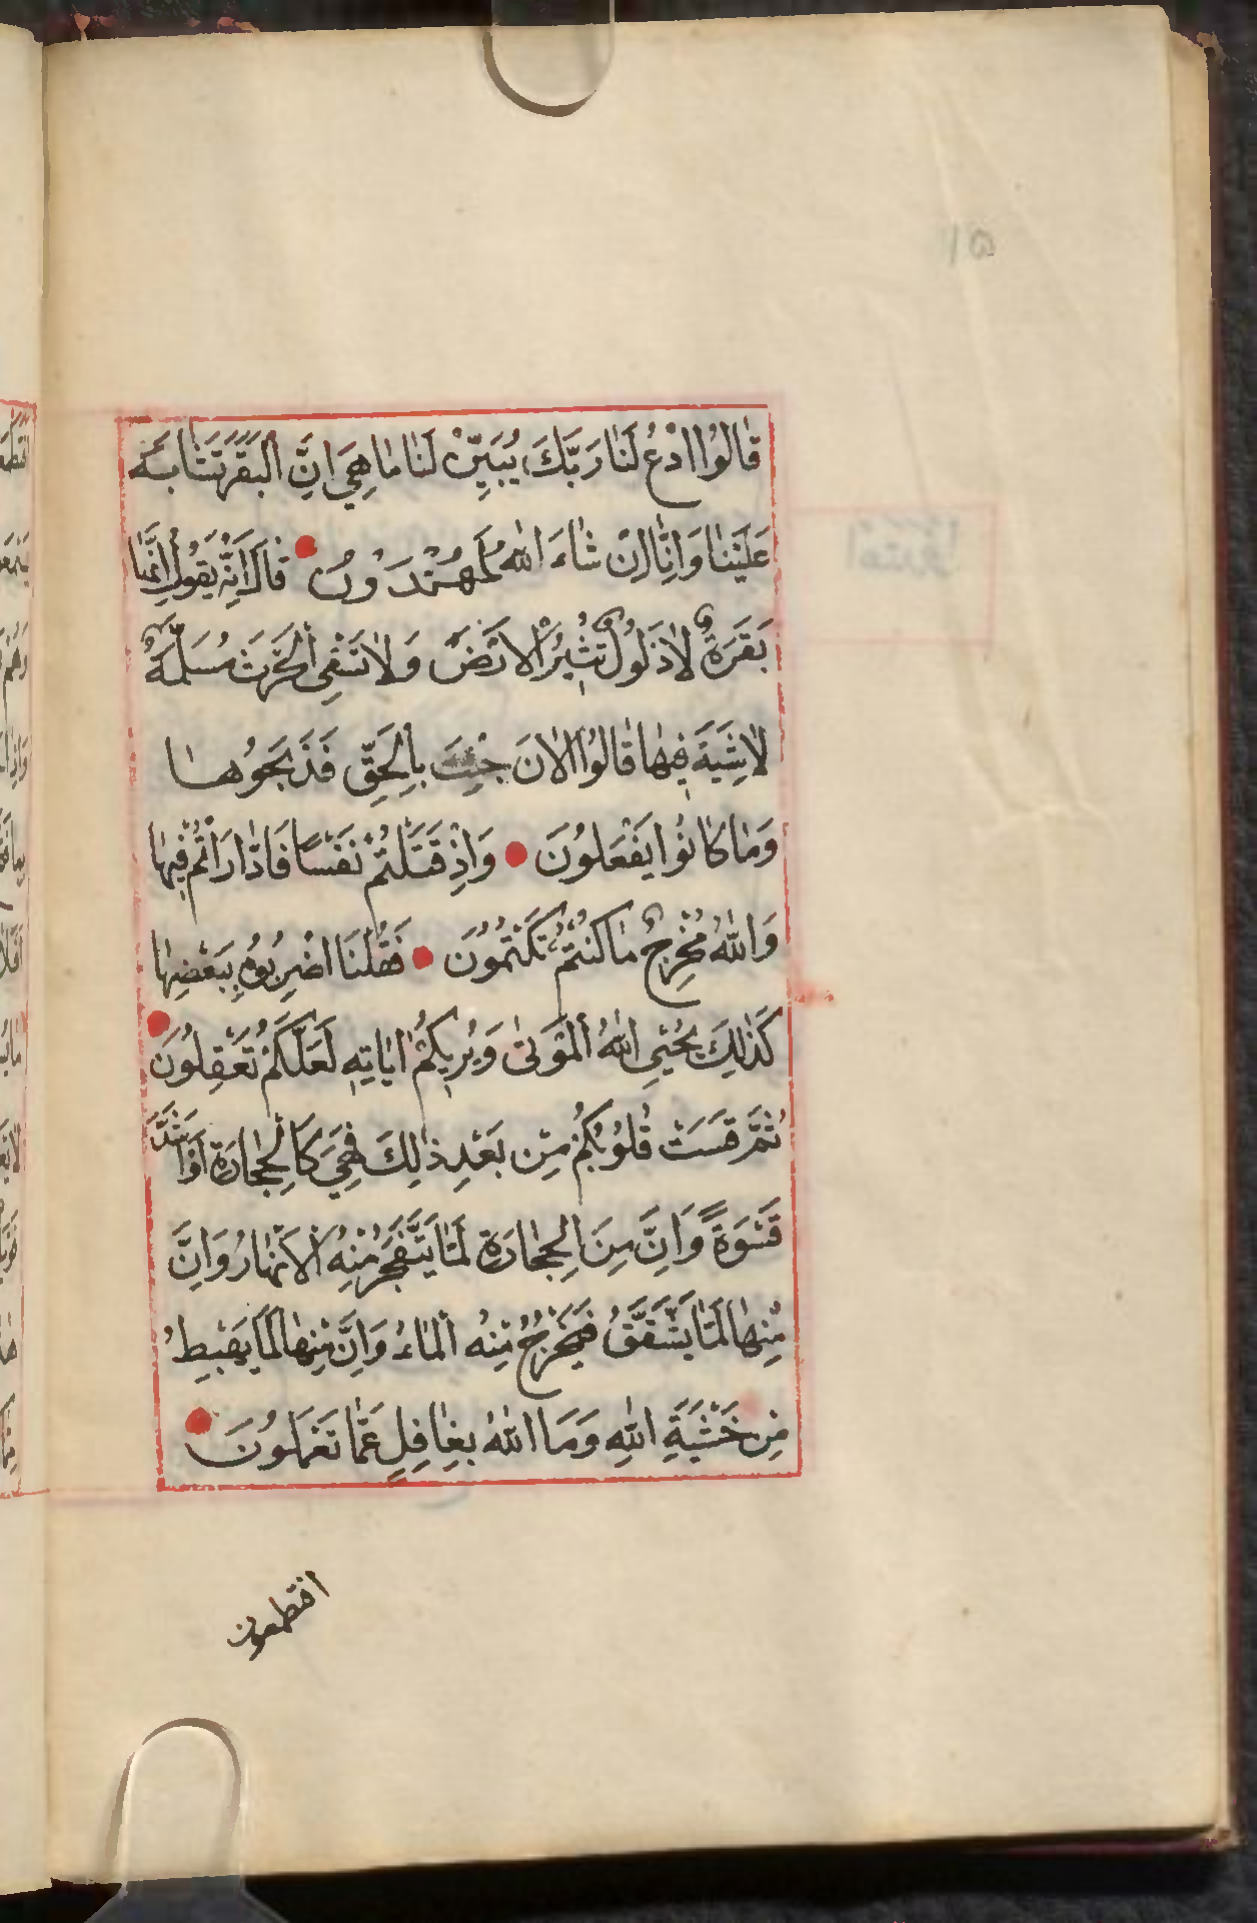 ١٥
قَالُوا ادْعُ لَنَا رَبَّكَ يُبَيِّنْ لَنَا مَا هِيَ اِنَّ الْبَقَرَ تَشَابَهَ
عَلَيْنَا وَاِنَّا اِنْ شَاءَ اللهُ لَمُهْتَدُونَ قَالَ اِنَّهُ يَقُولُ اِنَّهَا
بَقَرَةٌ لَا ذَلُولٌ تُثِيرُ الْاَرْضَ وَلَا تَسْقِي الْحَرْثَ مُسَلَّمَةٌ
لَا شِيَةَ فِيهَا قَالُوا الْاٰنَ جِئْتَ بِالْحَقِّ فَذَبَحُوهَا
وَمَا كَادُوا يَفْعَلُونَ وَاِذْ قَتَلْتُمْ نَفْسًا فَادَّارَاْتُمْ فِيهَا
وَاللهُ مُخْرِجٌ مَا كُنْتُمْ تَكْتُمُونَ فَقُلْنَا اضْرِبُوهُ بِبَعْضِهَا
كَذٰلِكَ يُحْيِي اللهُ الْمَوْتٰى وَيُرِيكُمْ اٰيَاتِهِ لَعَلَّكُمْ تَعْقِلُونَ
ثُمَّ قَسَتْ قُلُوبُكُمْ مِنْ بَعْدِ ذٰلِكَ فَهِيَ كَالْحِجَارَةِ اَوْ اَشَدُّ
قَسْوَةً وَاِنَّ مِنَ الْحِجَارَةِ لَمَا يَتَفَجَّرُ مِنْهُ الْاَنْهَارُ وَاِنَّ
مِنْهَا لَمَا يَشَّقَّقُ فَيَخْرُجُ مِنْهُ الْمَاءُ وَاِنَّ مِنْهَا لَمَا يَهْبِطُ
مِنْ خَشْيَةِ اللهِ وَمَا اللهُ بِغَافِلٍ عَمَّا تَعْمَلُونَ
افتطمعون